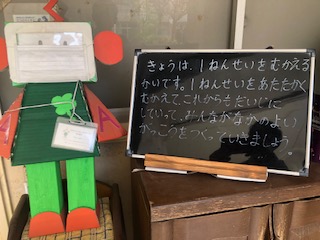 きょうは、1ねんせいをむかえる
かいです。1ねんせいをあたたかく
むかえて、これからもだいじに
していって、みんながなかのよい
がっこうをつくっていきましょう。